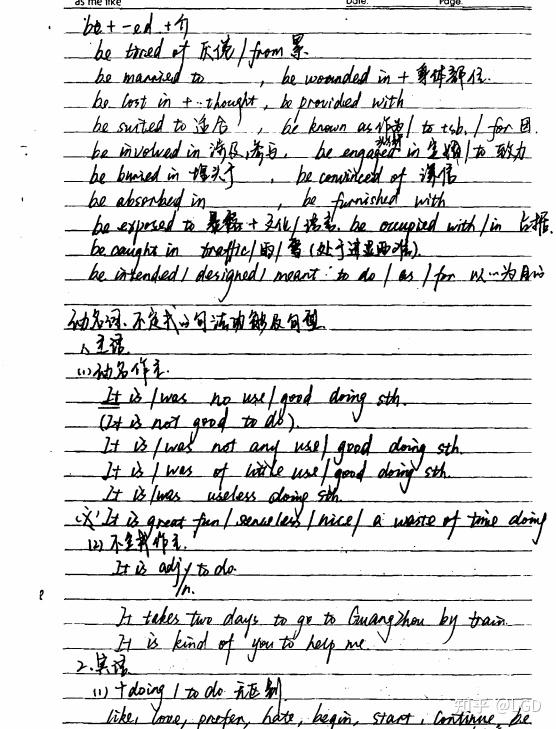 as me like Date: Page:
be + -ed + 介
be tired of 厌倦 / from 累
be married to , be wounded in + 身体部位.
be lost in + thought, be provided with
be suited to 适合 , be known as 作为 / to + sb. / for 因
be involved in 涉及,参与, be engaged in 生婚 / to 致力
be buried in 埋头于 , be convinced of 深信
be absorbed in , be furnished with
be exposed to 暴露 + 文化 / 语言. be occupied with / in 占据
be caught in traffic / 雨 / 雪 (处于进退两难).
be intended / designed / meant to do / as / for 以…为目的
动名词、不定式的句法功能及句型
1、主语
(1) 动名作主.
It is / was no use / good doing sth.
(It is not good to do).
It is / was not any use / good doing sth.
It is / was of little use / good doing sth.
It is / was useless doing sth.
It is great fun / senseless / nice / a waste of time doing
(2) 不定式作主.
It is adj / n. to do
It takes two days to go to Guangzhou by train.
It is kind of you to help me
2. 宾语
(1) + doing / to do 无区别
like, love, prefer, hate, begin, start, continue, be
知乎 @LGD